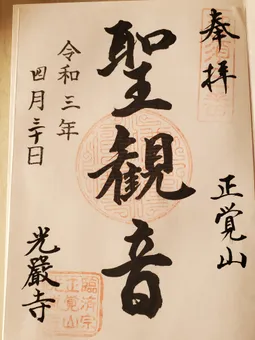 奉拝
正覚山
聖観音
令和三年
四月三十日
光巖寺
臨済宗
正覚山